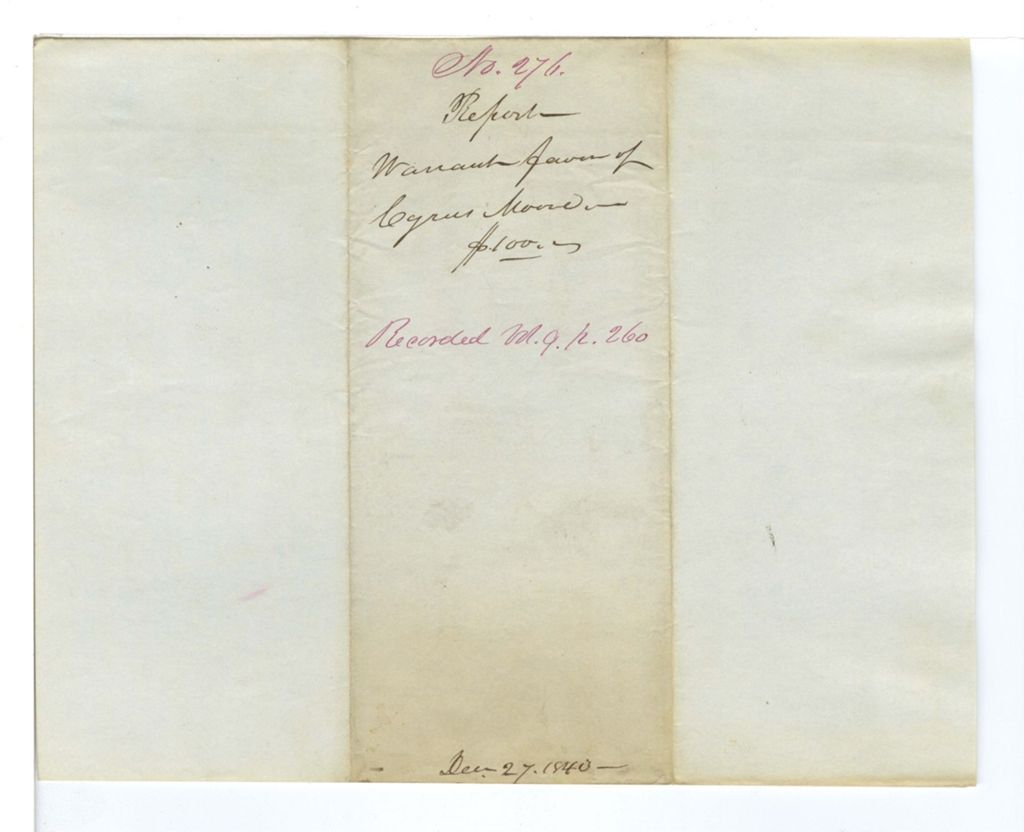 No. 276.
Report
Warrant favor of
Cyrus Moore
$100.
Recorded Vol. 9. p. 260
Dec. 27. 1843